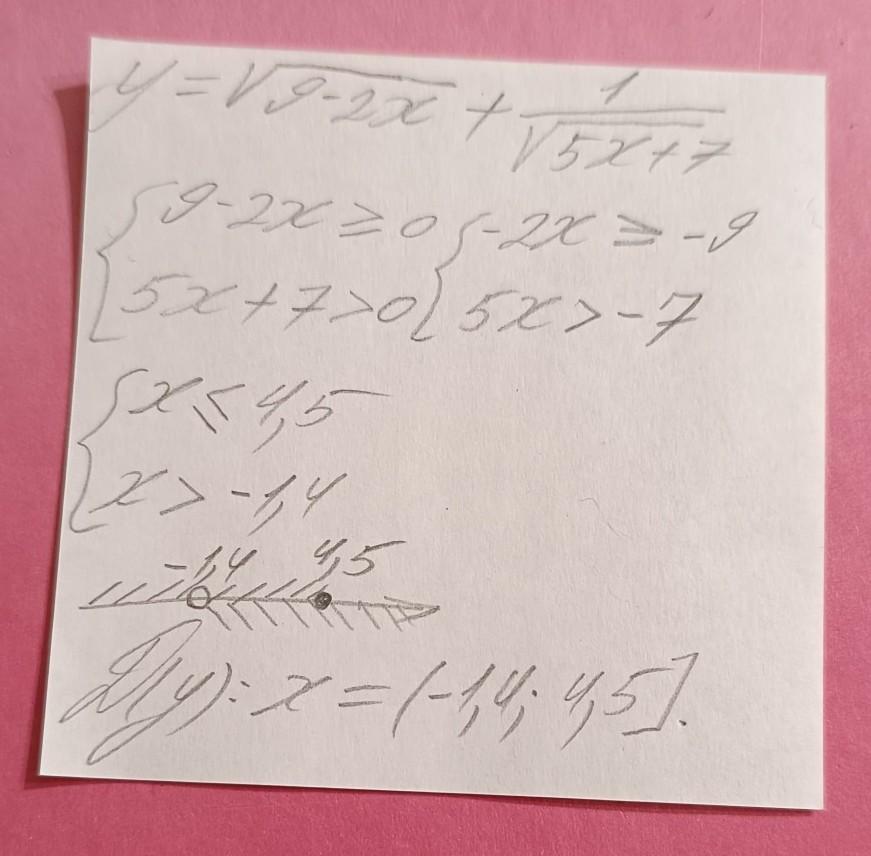 y = √(9-2x) + 1/√(5x+7)
{ 9-2x ≥ 0 { -2x ≥ -9
{ 5x+7>0 { 5x > -7
{ x ≤ 4,5
{ x > -1,4
-1,4 4,5
D(y): x = (-1,4; 4,5].